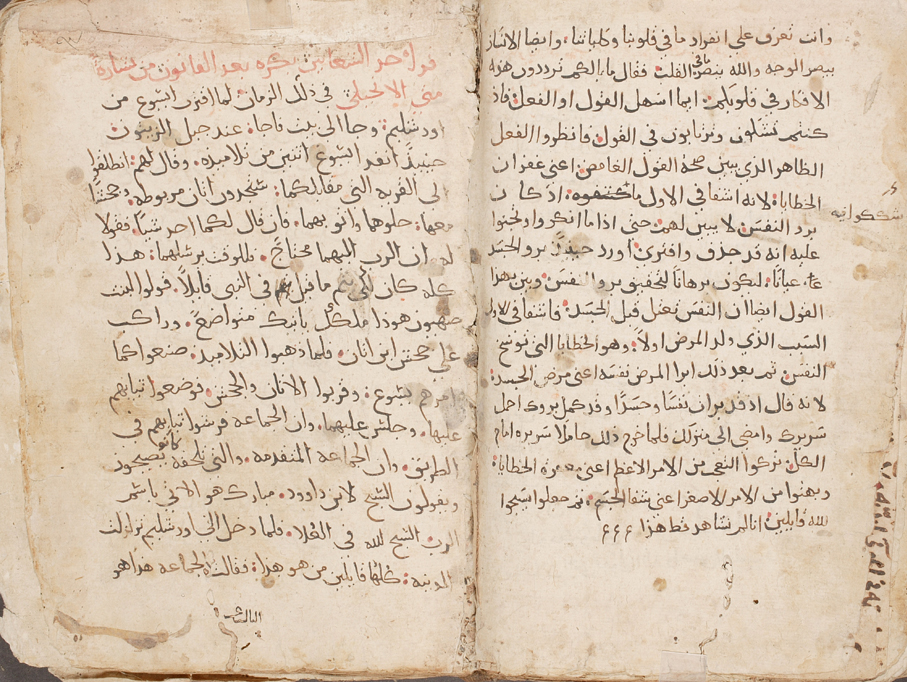 وانت تعرف على انفراد ما في قلوبنا وكلياتنا، وايضا الانسان
يبصر الوجه والله يبصر ما في القلب فقال ما بالكم ترددون هذه
الافكار في قلوبكم: ايما اسهل القول او الفعل: فاذ
كنتم تشكون وترتابون في القول: فانظروا الفعل
الظاهر الذي يبين صحة القول الغامض: اعني غفران
الخطايا: لانه اشفا في الاول ما اذ كان
شككوا فيه
برو النفس لا يبين لهم: حتى اذا ما انكروا وتجنوا
عليه انه قد جدف وافترى: اورد حينيذ برو الجسد
عيانا: ليكون برهانا لتحقيق برو النفس: ويبين بهذا
القول ايضا ان النفس تعتل قبل الجسد: فاشفا في الاول
السبب الذي ولد المرض اولا: وهو الخطايا التي توسخ
النفس: ثم بعد ذلك ابرا المرض نفسه اعني مرض الجسد:
لانه قال اذ قد بران نفسا وجسدا وقد كمل بروك احمل
سريرك وامضى الى منزلك: فلما خرج ذلك حاملا سريره امام
الكل: تركوا التعجب من الامر الاعظم اعني مغفرة الخطايا:
وبهتوا من الامر الاصغر اعني شفا الجسم: ثم جعلوا يسبحوا
لله قايلين: اننا لم نشاهد قط هذا
حد الشعانين بكره بعد القانون من بشارة
متى الانجيلي في ذلك الزمان: لما اقترب ايسوع من
اورشليم: وجا الى بيت فاجا: عند جبل الزيتون
حينيذ انفد ايسوع اثنين من تلاميذه: وقال لهم: انطلقوا
الى القرية التي مقابلكما: ستجدون اتان مربوطه: وجحشا
معها: حلوهما واتو بهما: فان قال لكما احد شيا: فقولا
له ان الرب اليهما محتاج: فللوقت يرسلهما: هذا
كله كان لكي يتم ما قيل في النبي قايلا: قولوا لبنت
صهيون هوذا ملكك ياتيك متواضع: وراكب
على جحش ابن اتان: فلما ذهبوا التلاميذ: صنعوا كما
امرهم يسوع: وقربوا الاتان والجحش: فوضعوا ثيابهم
عليها: وجلس عليهما: وان الجماعه فرشوا ثيابهم في
الطريق: وان الجماعة المتقدمه: والتي تلحقه كانوا يصيحون
ويقولون التسبيح لابن داوود: مبارك هو الاتي باسم
الرب التسبيح لله في العلا: فلما دخل الى اورشليم تزلزلت
المدينه: كلها قايلين من هو هذا: فقالت الجماعه هذا هو
الثالث